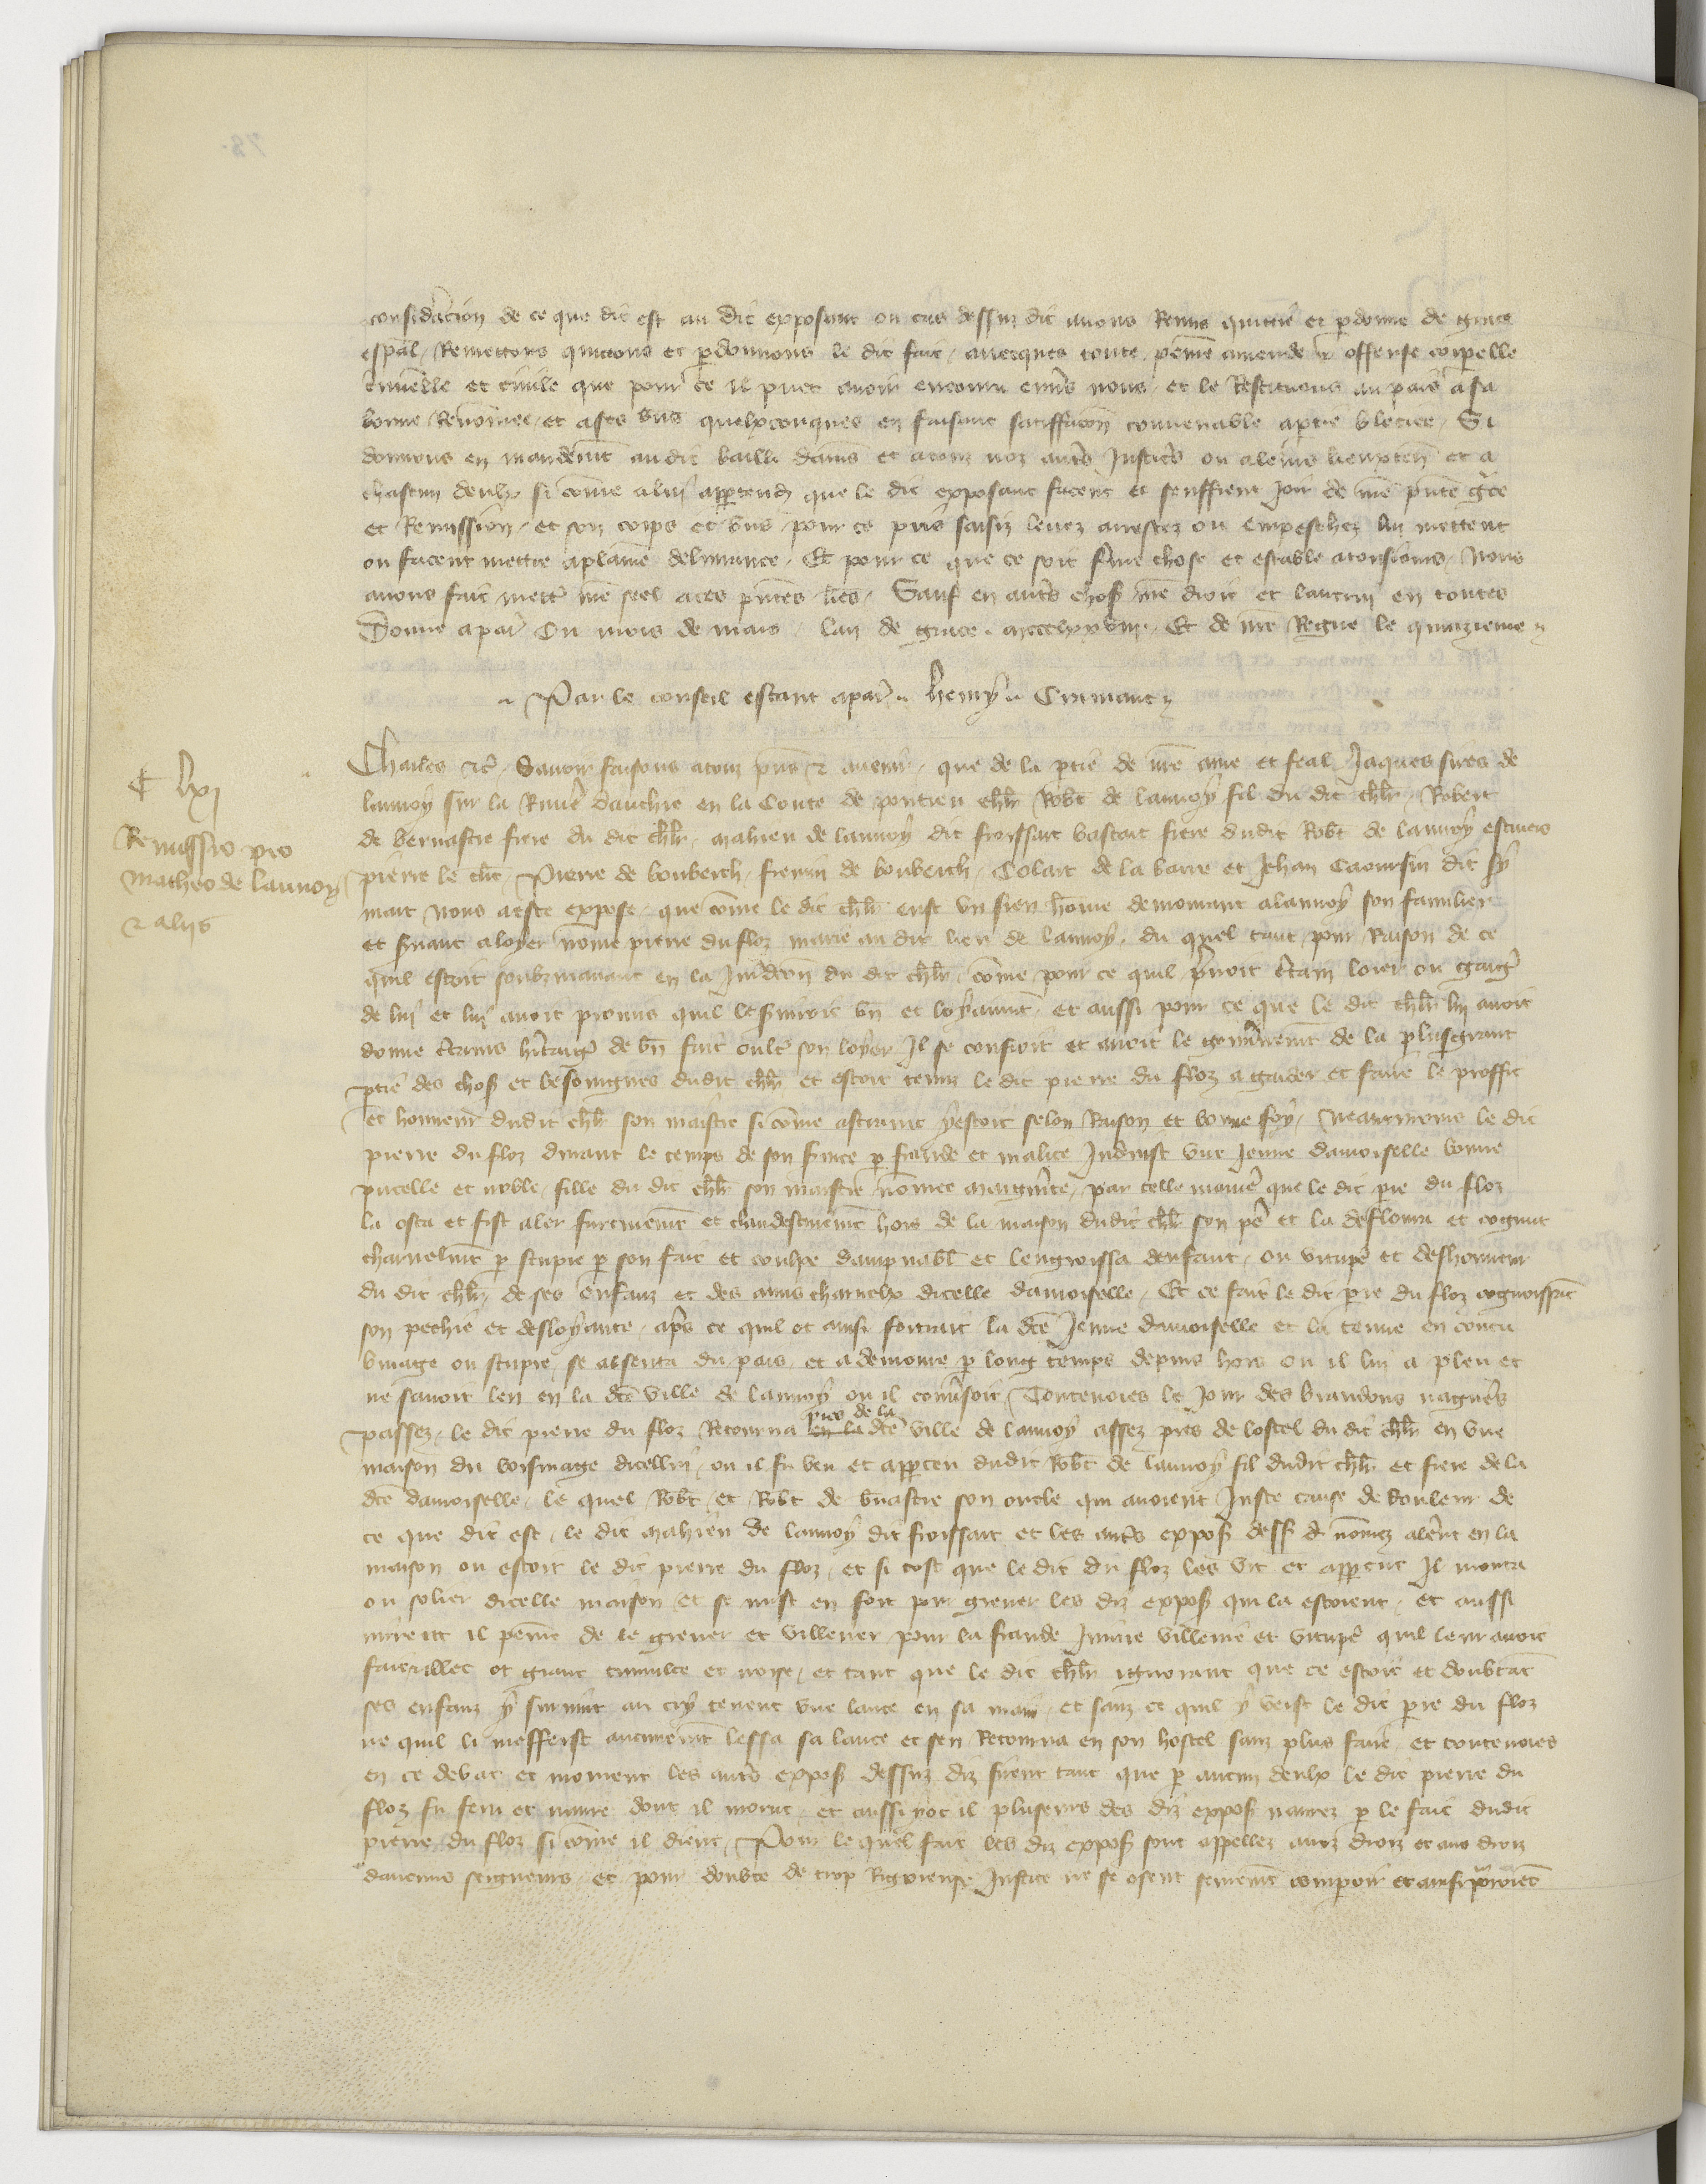 consideracion de ce que dit est au dit exposant ou cas dessuz dit avons Remis quittie et pdonne de grace
espal, Remettons quittons et pdonnons le dit fait, avecques toute peine amende & offense corpelle
criminelle et civile que pour ce il puet avoir encouru envs nous, et le Restituons au pais a sa
bonne Renomee, et a ses bns quelxconques en faisant satiffacion convenable a ptie blecier, Si
donnons en mandemt au dit bailli damiens et a touz noz auts justiciers ou a leurs lieuxten et a
chascun deulx si come a lui appartendra que le dit exposant facent et seuffrent joir de nre pnte gce
et Remission, et son corps et bns pour ce pris saisiz levez arrestez ou empeschez lui mettent
ou facent mettre a plaine delivrance, Et pour ce que ce soit ferme chose et estable a tousjours, Nous
avons fait mettr nre seel a ces pntes lres, Sauf en auts choses nre droit et lautrui en toutes
Donne a paris Ou mois de mars, lan de grace mccclxxviii, Et de nre Regne le quinzieme
Par le conseil estant a paris Henry Cremaut
Charles &c, Savoir faisons a touz pns & avenir, que de la ptie de nre ame et feal Jaques sires de
lannoy sur la Riviere dauthie en la Conte de pontieu chlr Robt de lannoy fil du dit chlr, Robert
de bernastre frere du dit chlr, mahieu de lannoy dit froissart bastart frere dudit Robt de lannoy estuiers
pierre le clerc, Pierre de bouberch, fremin de bouberch, Colart de la barre et Jehan Caoursin dit sy
mart nous a este expose que come le dit chlr eust un sien home demourant a lannoy son familier
et svant a loyer nome pierre du floz marie au dit lieu de lannoy, du quel tant pour Raison de ce
quil estoit soubzmanant en la juridicion du dit chlr, come pour ce quil prenoit ctain loier ou gaige
de lui et lui avoit promis quil le serviroit bn et loyaumt et aussi pour ce que le dit chlr lui avoit
donne ctains hitaige de bn fait oultre son loyer Il se confioit et avoit le gouvernemt de la plus grant
ptie des choses et besoingnes dudit chlr et estoit tenuz le dit pierre du floz a garder et faire le proffit
et honneur dudit chlr son maistre si come astraint y estoit selon Raison et bonne foy, Neantmoins le dit
pierre du floz durant le temps de son service p fraude et malice Induist une jeune damoiselle bonne
pucelle et noble, fille du dit chlr son maistre nomee marguerite, par telle maniere que le dit pre du floz
la osta et fist aler furtivement et clandestinement hors de la maison dudit chlr son pere et la defloura et cognut
charnelmt p stupre p son fait et coulpe dampnable et lengroissa denfant, ou vitupe et deshonneur
du dit chlr, de ses enfanz et des amis charnelx dicelle damoiselle, Et ce fait le dit pre du floz cognoissant
son pechie et desloyaute, aps ce quil ot ainsi fortrait la dce jeune damoiselle et la tenue en concu
binage ou stupre, se absenta du pais, et a demoure p long temps depuis hors ou il lui a pleu et
ne savoit len en la dce ville de lannoy ou il conversoit, Toutevoies le jour des brandons nagueres
passez, le dit pierre du floz Retourna en la pres de la dce ville de lannoy assez pres de lostel du dit chlr en une
maison du voisinage dicellui, ou il fu veu et apperceu dudit Robt de lannoy fil dudit chlr et frere de la
dce damoiselle, le quel Robt, et Robt de bnastre son oncle qui avoient juste cause de douleur de
ce que dit est, le dit mahieu de lannoy dit froissart et les auts expos dess nomez alerent en la
maison ou estoit le dit pierre du floz, et si tost que le dit du floz les vit et apperceut Il monta
ou solier dicelle maison et se mist en fort pour grever les diz expos qui la estoient, et aussi
mirent il peine de le grever et villener pour la fraude injure villenie et vitupe quil leur avoit
fait, illec ot grant tumulte et noise, et tant que le dit chlr ignorant que ce estoit et doubtant
ses enfanz y survint au cry tenent une lance en sa main, et sanz ce quil y veist le dit pre du floz
ne quil li meffeist aucunemt lessa sa lance et sen Retourna en son hostel sanz plus faire, et toutevoies
en ce debat et moment les auts expos dessuz diz firent tant que p aucun deulx le dit pierre du
floz fu feru et navre dont il morut, et aussi y ot il plusieurs des diz expos navrez p le fait dudit
pierre du floz si come il dient, Pour le quel fait les diz expos sont appellez aux droiz et aus droiz
daucuns seigneurs, et pour doubte de trop Rigoreuse justice ne se osent seurement comparoir et ainsi pourroient
¶ lxj
Remissio pro
Matheo de lannoy
& aliis